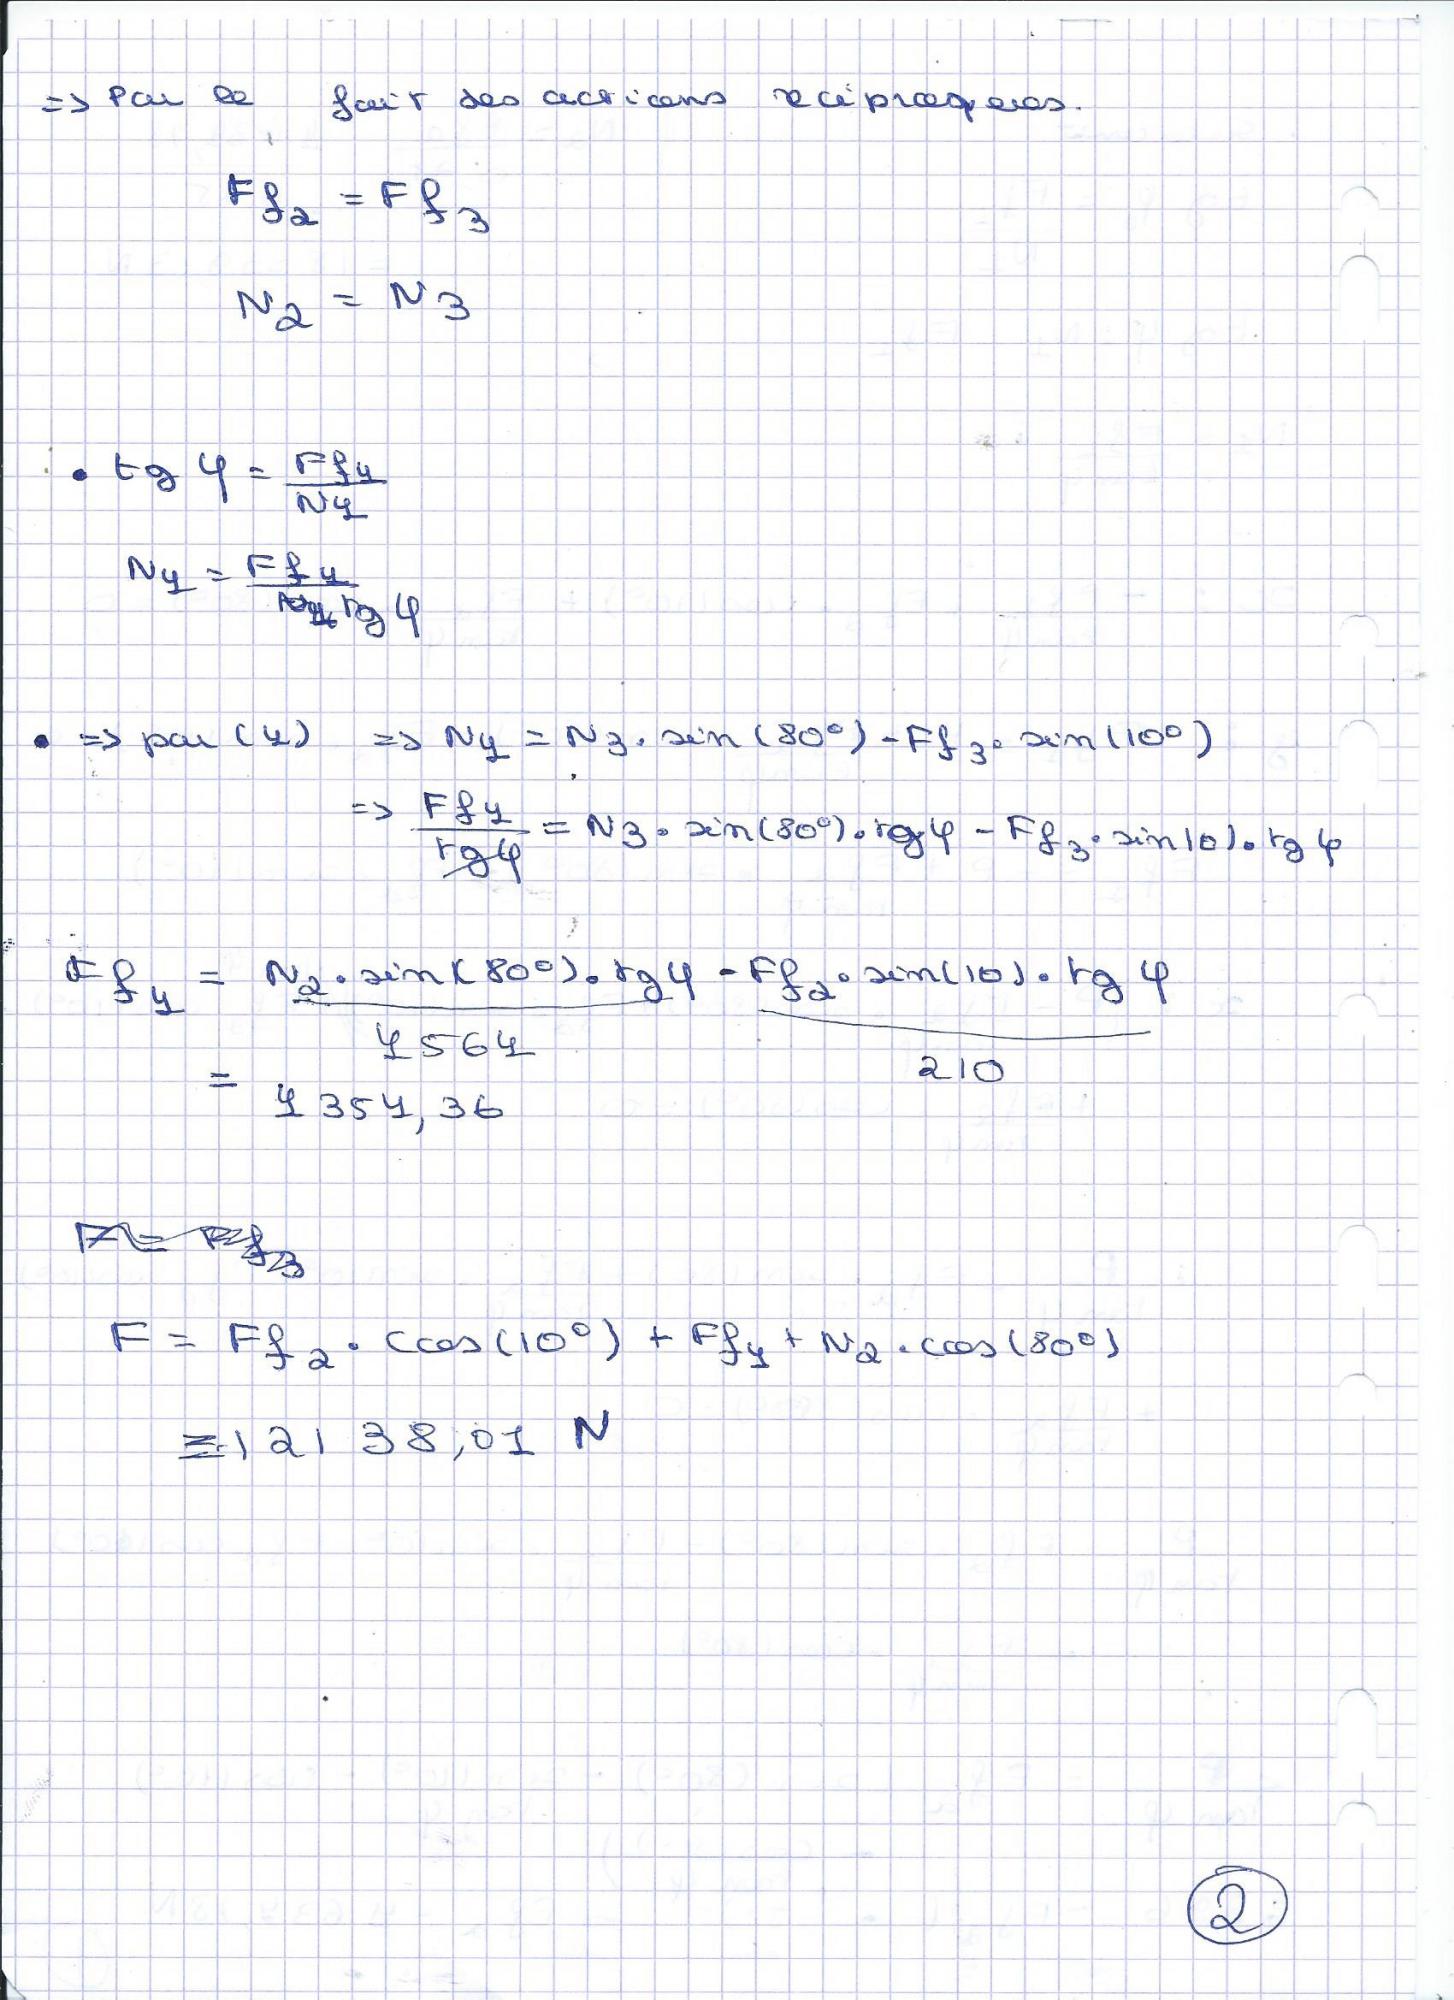 => Par le fait des actions réciproques.
Ff2 = Ff3
N2 = N3
• tg φ = Ff4 / N4
N4 = Ff4 / tg φ
• => par (4) => N4 = N3 . sin (80°) - Ff3 . sin (10°)
=> Ff4 / tg φ = N3 . sin (80°) . tg φ - Ff3 . sin 10) . tg φ
Ff4 = N2 . sin (80°) . tg φ - Ff2 . sin (10) . tg φ
4564 210
= 4354,36
F = Ff3
F = Ff2 . cos (10°) + Ff4 + N2 . cos (80°)
= 12138,01 N
2